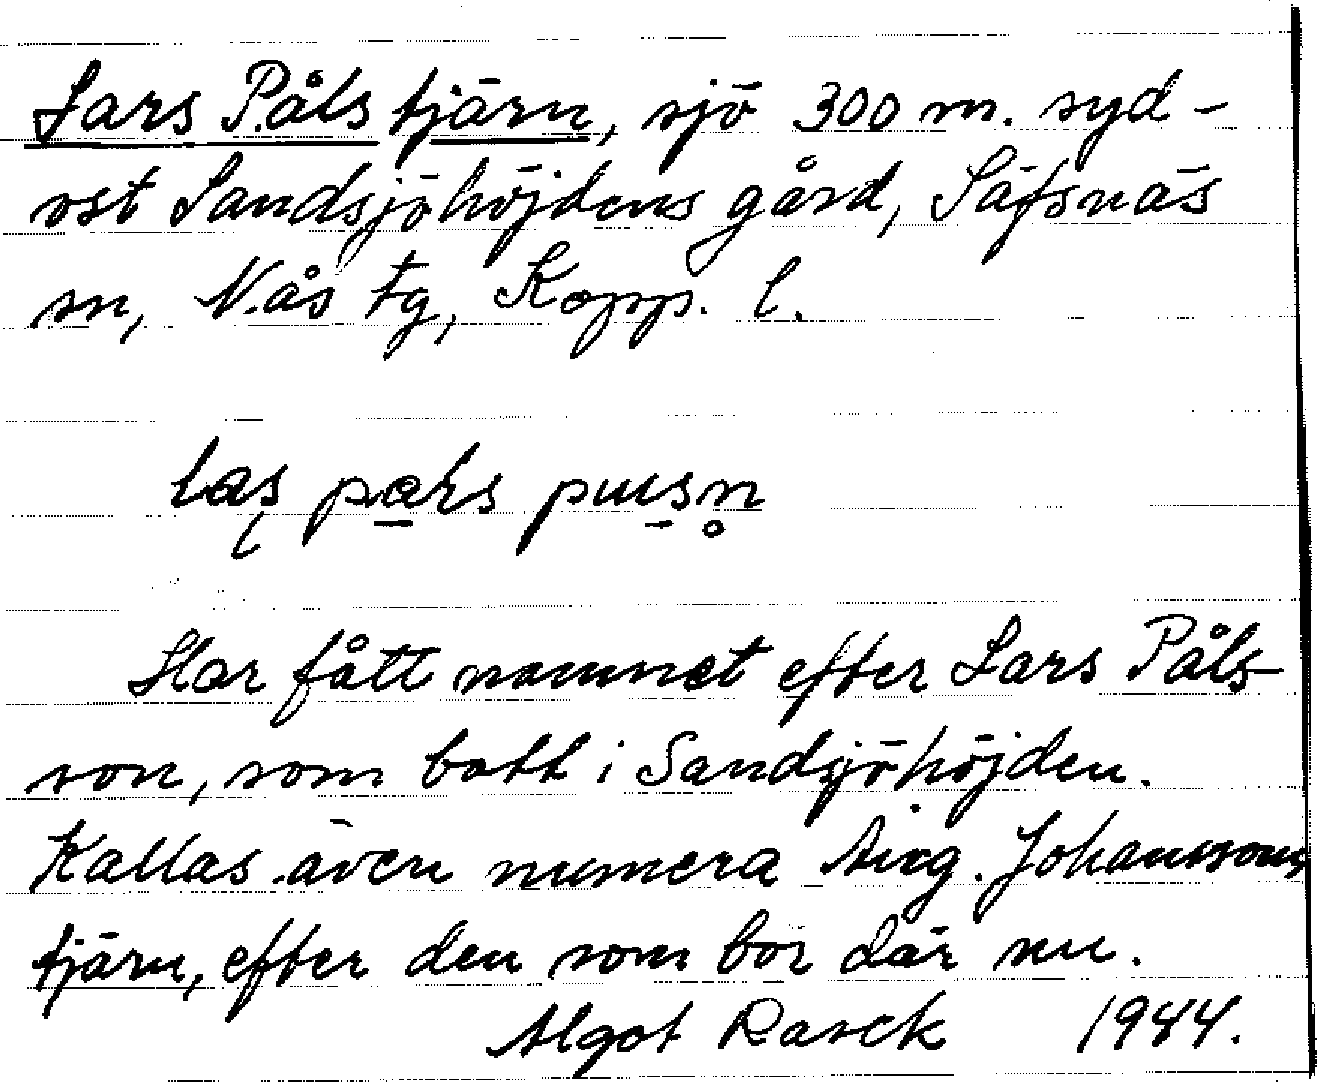 Lars Påls tjärn, sjö 300 m. syd-
ost Sandsjöhöjdens gård, Säfsnäs
sn, Nås tg, Kopp. l.
Har fått namnet efter Lars Påls-
son, som bott i Sandsjöhöjden.
Kallas även numera Aug. Johanssons
tjärn, efter den som bor där nu.
Algot Rasck 1944.